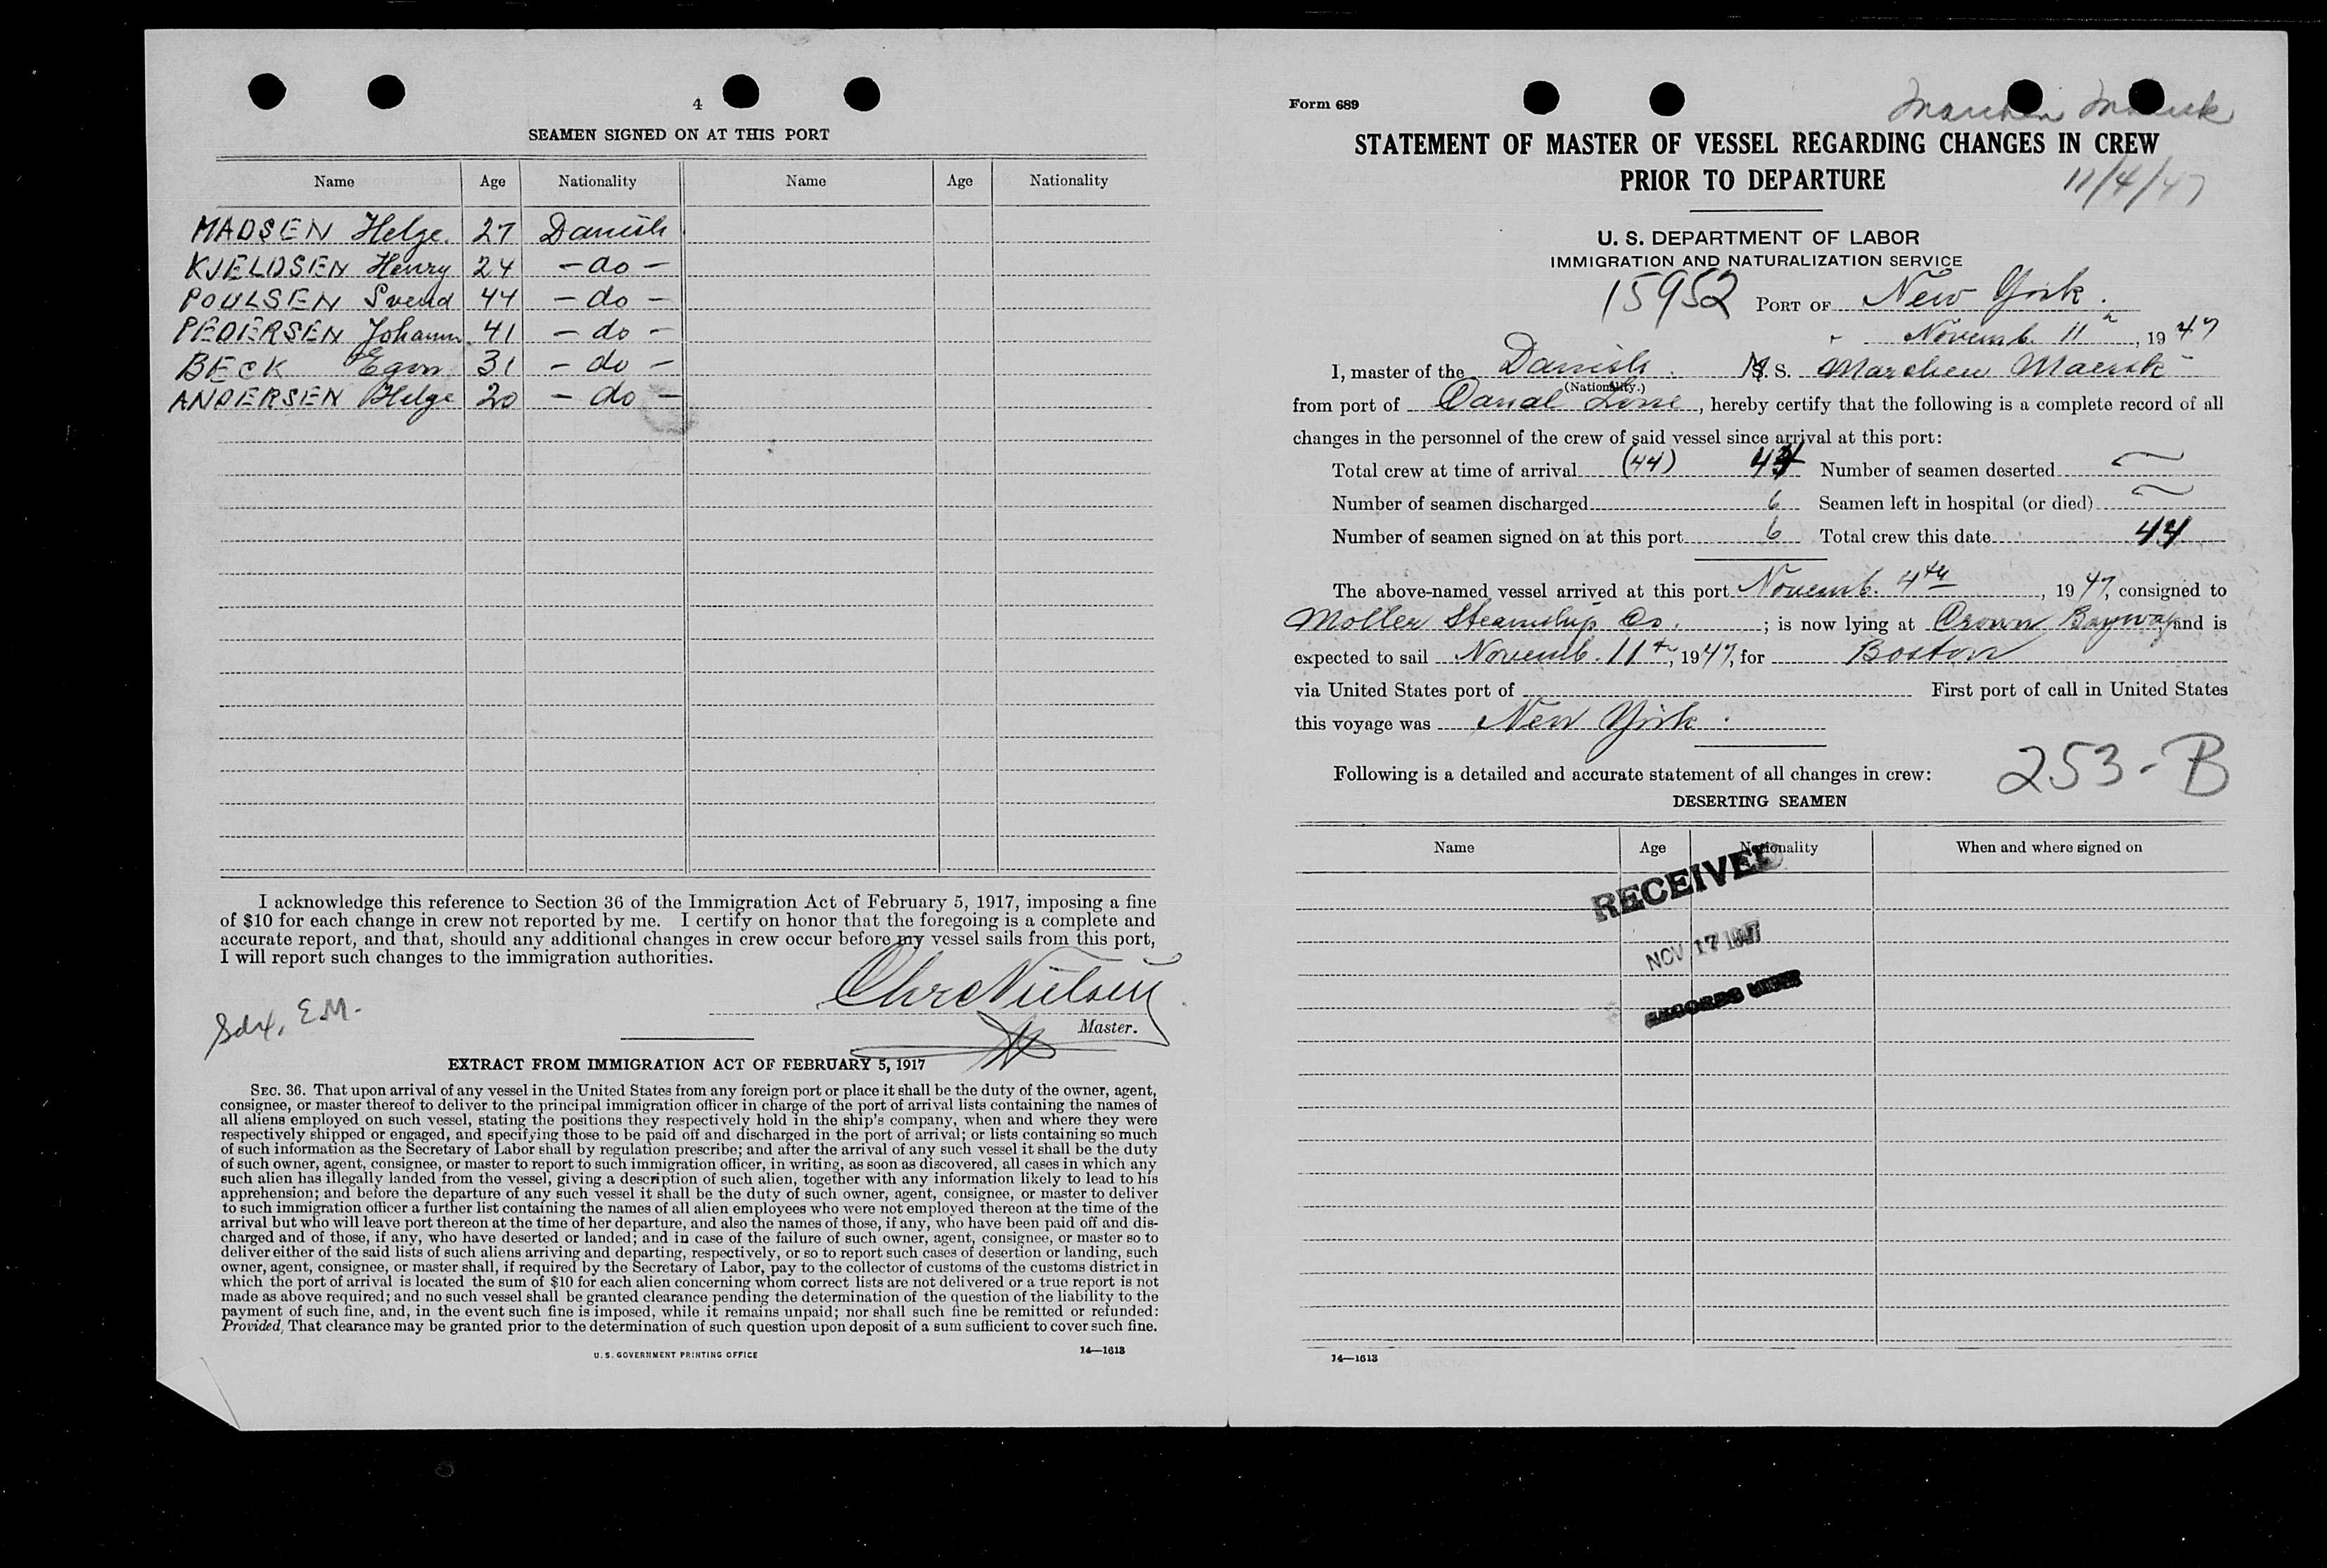 4
SEAMEN SIGNED ON AT THIS PORT
Name Age Nationality Name Age Nationality
MADSEN Helge. 27 Danish
KJELDSEN Henry 24 - do -
POULSEN Svend 44 - do -
PEDERSEN Johann 41 - do -
BECK Egon 31 - do -
ANDERSEN Helge 20 - do -
I acknowledge this reference to Section 36 of the Immigration Act of February 5, 1917, imposing a fine
of $10 for each change in crew not reported by me. I certify on honor that the foregoing is a complete and
accurate report, and that, should any additional changes in crew occur before my vessel sails from this port,
I will report such changes to the immigration authorities.
Chr Nielsen
Master.
E.M.
EXTRACT FROM IMMIGRATION ACT OF FEBRUARY 5, 1917
SEC. 36. That upon arrival of any vessel in the United States from any foreign port or place it shall be the duty of the owner, agent,
consignee, or master thereof to deliver to the principal immigration officer in charge of the port of arrival lists containing the names of
all aliens employed on such vessel, stating the positions they respectively hold in the ship's company, when and where they were
respectively shipped or engaged, and specifying those to be paid off and discharged in the port of arrival; or lists containing so much
of such information as the Secretary of Labor shall by regulation prescribe; and after the arrival of any such vessel it shall be the duty
of such owner, agent, consignee, or master to report to such immigration officer, in writing, as soon as discovered, all cases in which any
such alien has illegally landed from the vessel, giving a description of such alien, together with any information likely to lead to his
apprehension; and before the departure of any such vessel it shall be the duty of such owner, agent, consignee, or master to deliver
to such immigration officer a further list containing the names of all alien employees who were not employed thereon at the time of the
arrival but who will leave port thereon at the time of her departure, and also the names of those, if any, who have been paid off and dis-
charged and of those, if any, who have deserted or landed; and in case of the failure of such owner, agent, consignee, or master so to
deliver either of the said lists of such aliens arriving and departing, respectively, or so to report such cases of desertion or landing, such
owner, agent, consignee, or master shall, if required by the Secretary of Labor, pay to the collector of customs of the customs district in
which the port of arrival is located the sum of $10 for each alien concerning whom correct lists are not delivered or a true report is not
made as above required; and no such vessel shall be granted clearance pending the determination of the question of the liability to the
payment of such fine, and, in the event such fine is imposed, while it remains unpaid; nor shall such fine be remitted or refunded:
Provided, That clearance may be granted prior to the determination of such question upon deposit of a sum sufficient to cover such fine.
U. S. GOVERNMENT PRINTING OFFICE 14—1613
Form 689
Marchen Maersk
STATEMENT OF MASTER OF VESSEL REGARDING CHANGES IN CREW
PRIOR TO DEPARTURE
11/4/47
U. S. DEPARTMENT OF LABOR
IMMIGRATION AND NATURALIZATION SERVICE
15952 PORT OF New York.
Novemb. 11th, 1947
I, master of the Danish M. S. Marchen Maersk
(Nationality.)
from port of Canal Zone, hereby certify that the following is a complete record of all
changes in the personnel of the crew of said vessel since arrival at this port:
Total crew at time of arrival (44) 44 Number of seamen deserted ~
Number of seamen discharged 6 Seamen left in hospital (or died) ~
Number of seamen signed on at this port 6 Total crew this date 44
The above-named vessel arrived at this port Novemb. 4th, 1947, consigned to
Moller Steamship Co.; is now lying at Crown Bayway and is
expected to sail Novemb. 11th, 1947, for Boston
via United States port of First port of call in United States
this voyage was New York.
Following is a detailed and accurate statement of all changes in crew:
253-B
DESERTING SEAMEN
Name Age Nationality When and where signed on
RECEIVED
NOV 17 1947
RECORDS
14—1613